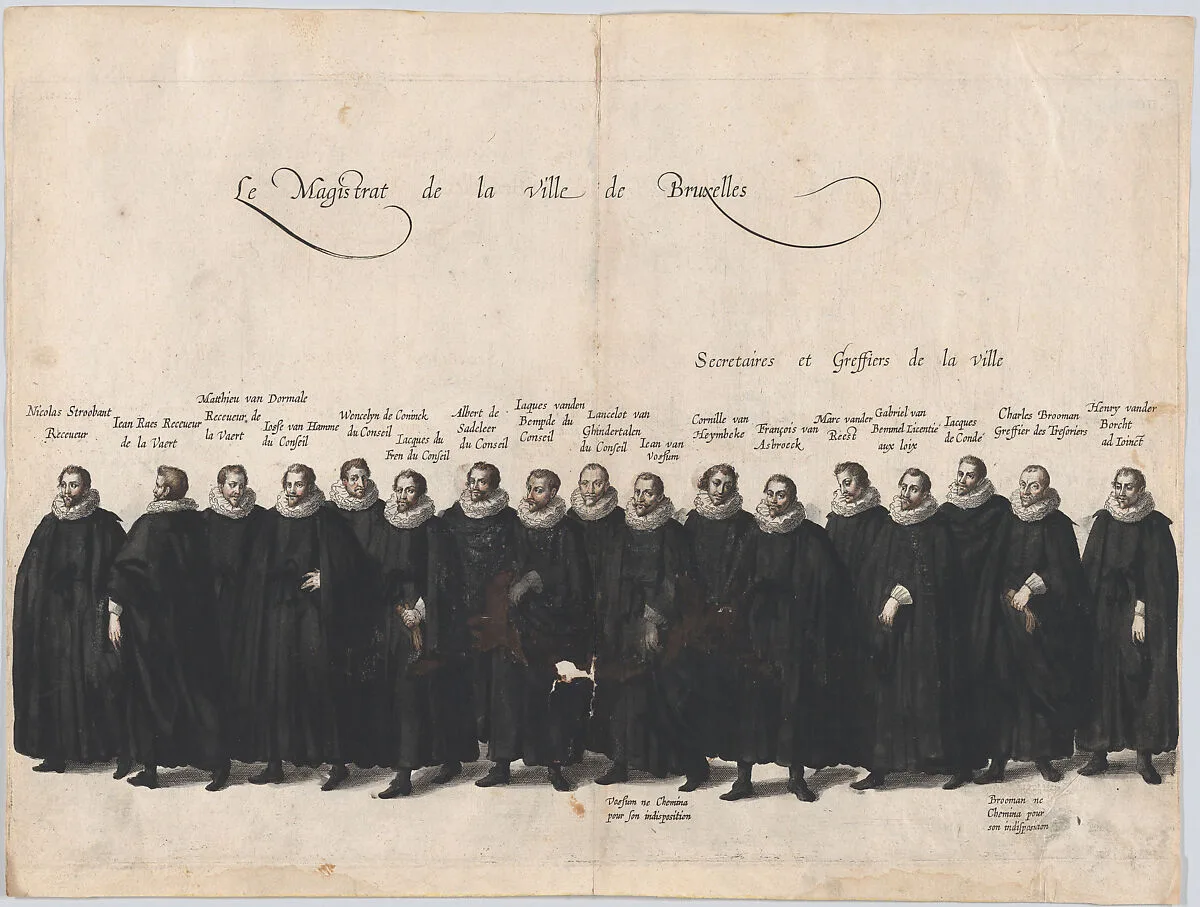 Le Magistrat de la Ville de Bruxelles
Secretaires et Greffiers de la Ville
Nicolas Stroobant
Receueur
Iean Raes Receueur
de la Vaert
Matthieu van Dormale
Receueur de
la Vaert
Iosse van Hamme
du Conseil
Wencelyn de Coninck
du Conseil
Iacques du
Fren du Conseil
Albert de
Sadeleer
du Conseil
Iaques vanden
Bempde du
Conseil
Lancelot van
Ghindertalen
du Conseil
Iean van
Vossum
Cornille van
Heymbeke
François van
Asbroeck
Marc vander
Reest
Gabriel van
Bemmel Licentie
aux loix
Iacques
de Condé
Charles Brooman
Greffier des Tresoriers
Henry vander
Borcht
ad Ioinct
Vossum ne Chemina
pour son indisposition
Brooman ne
Chemina pour
son indisposition